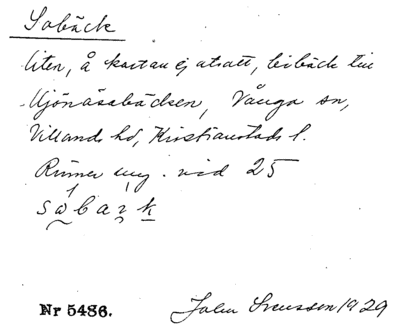 Sobäck
liten, å kartan ej utsatt, bibäck till
Mjönäsabäcken, Vånga sn,
Villands hd, Kristianstads l.
Rinner ung. vid 25
Nr 5486.
John Svensson 1929